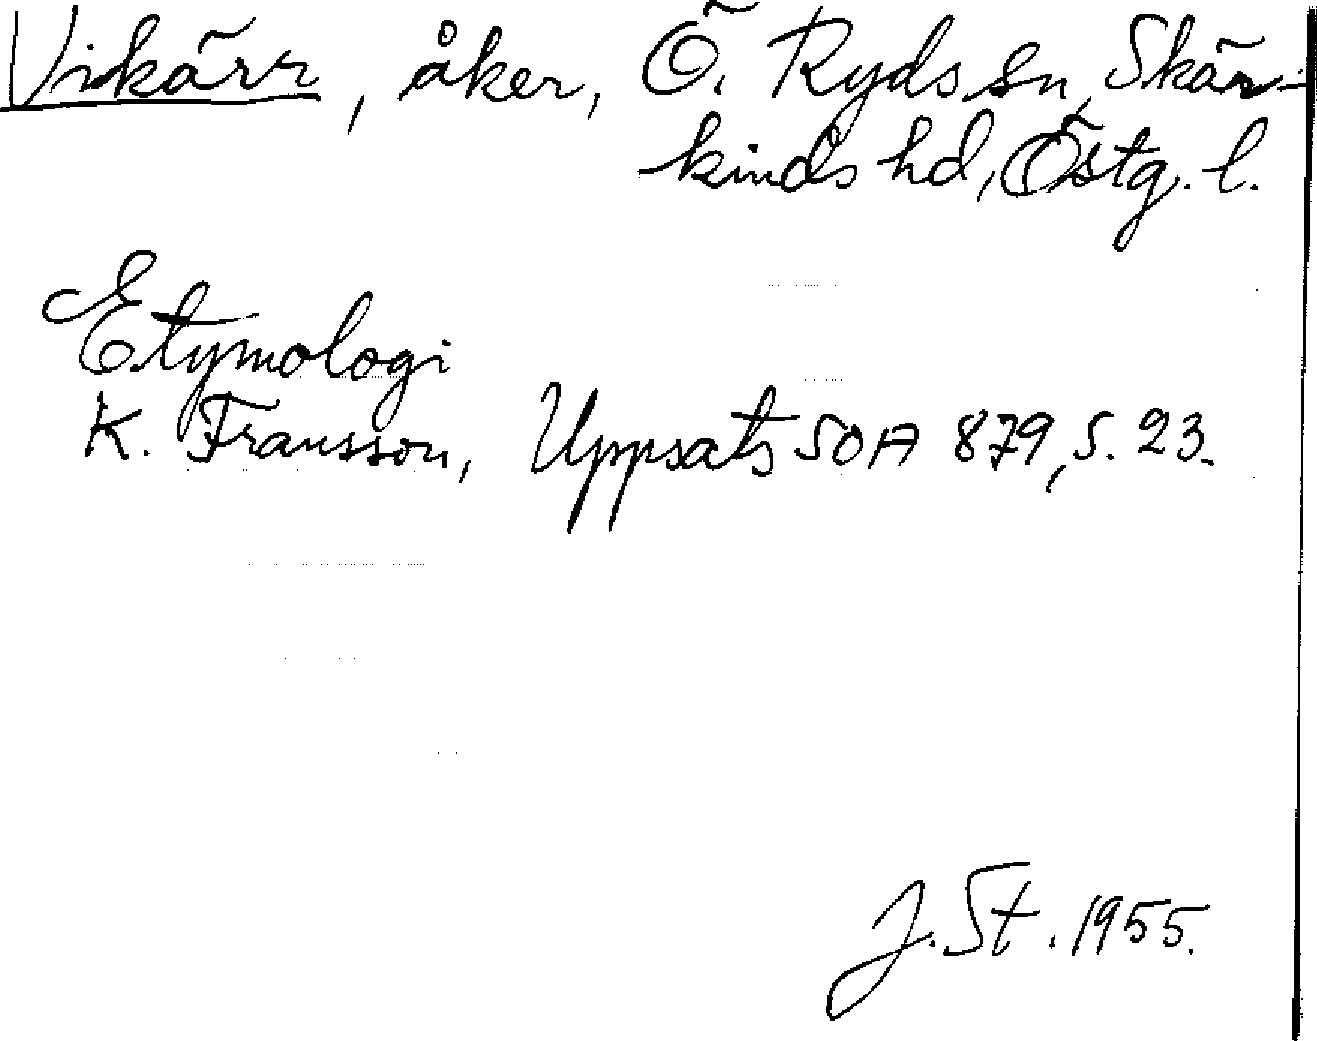 Vikärr, åker, Ö. Ryds sn, Skär-
kinds hd, Östg. l.
Etymologi
K. Fransson, Uppsats SOA 879, s. 23.
J. St. 1955.